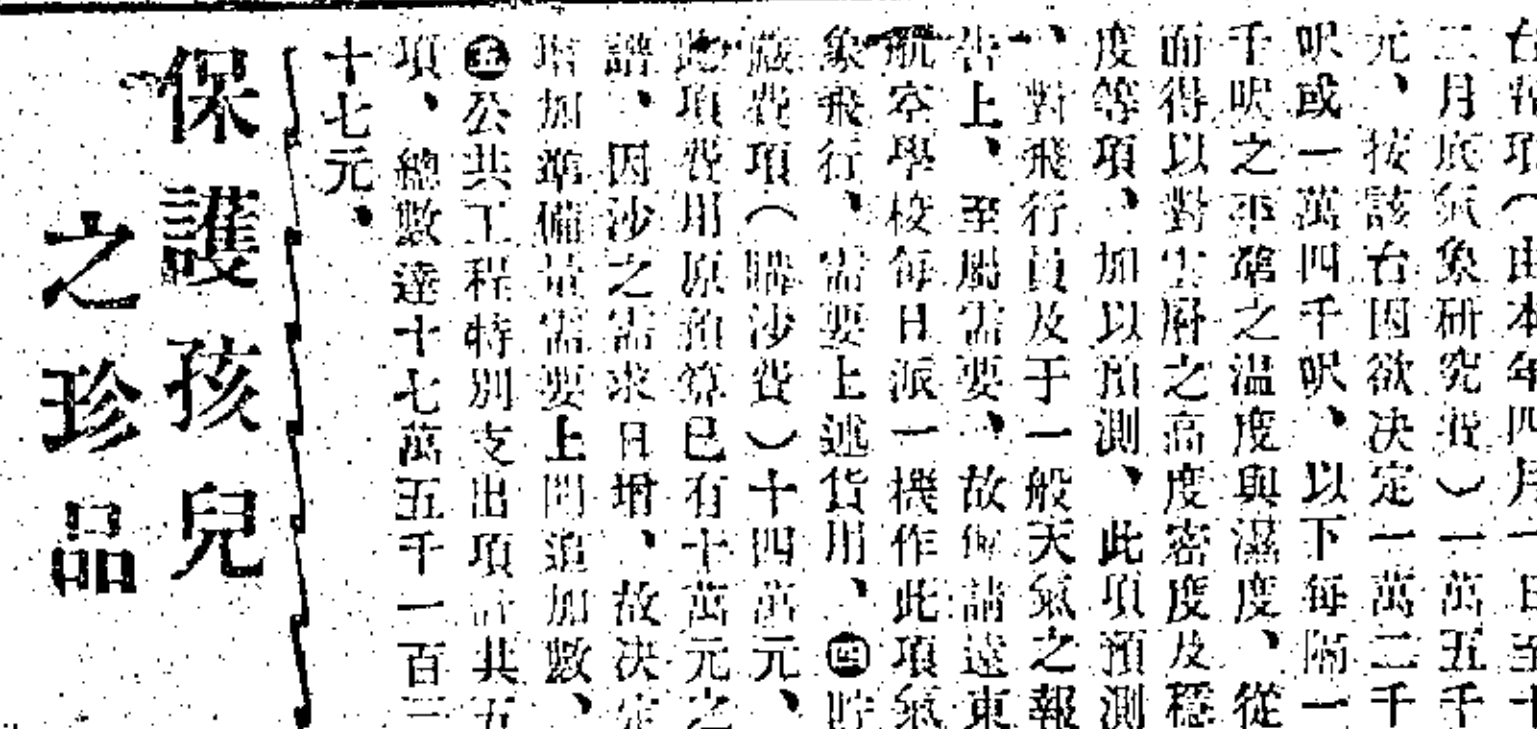 台常項（由本年四月一日至十
二月底氣象研究費）一萬五千
元、按該台因欲決定一萬二千
呎或一萬四千呎、以下每隔一
千呎之平磅之温度與濕度、從
而得以對雲府之高度密度及穩
度等項、加以預測、此項預測
、對飛行員及于一般天氣之報
告上、至屬需要、故請遠東
航空學校每日派一機作此項氣
象飛行、需要上述貨用、㊃貯
藏費項（購沙費）十四萬元、
此項費用原預算已有十萬元之
譜、因沙之需求日增、故決定
增加準備量需要上開追加數、
㊄公共工程特別支出項計共五
項、總數達十七萬五千一百三
十七元、
保護孩兒
之珍品